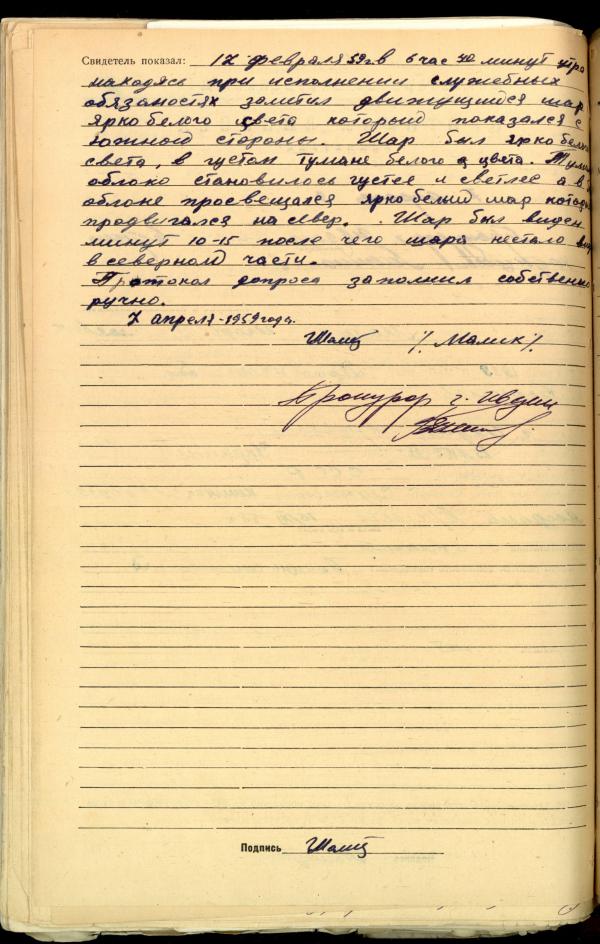 Свидетель показал: 17 февраля 59г в 6 час 40 минут утра
находясь при исполнении служебных
обязаностях заметил движущийся шар
ярко белого цвета который показался с
южной стороны. Шар был ярко белого
света, в густом тумане белого цвета.
облоко становилось густее и светлее а в
облоке просвещался ярко белый шар который
продвигался на север. Шар был виден
минут 10-15 после чего шара нестало
в северной части.
Протокол допроса заполнил собственно
ручно.
7 апреля-1959года.
Прокурор г. Ивдель
Подпись